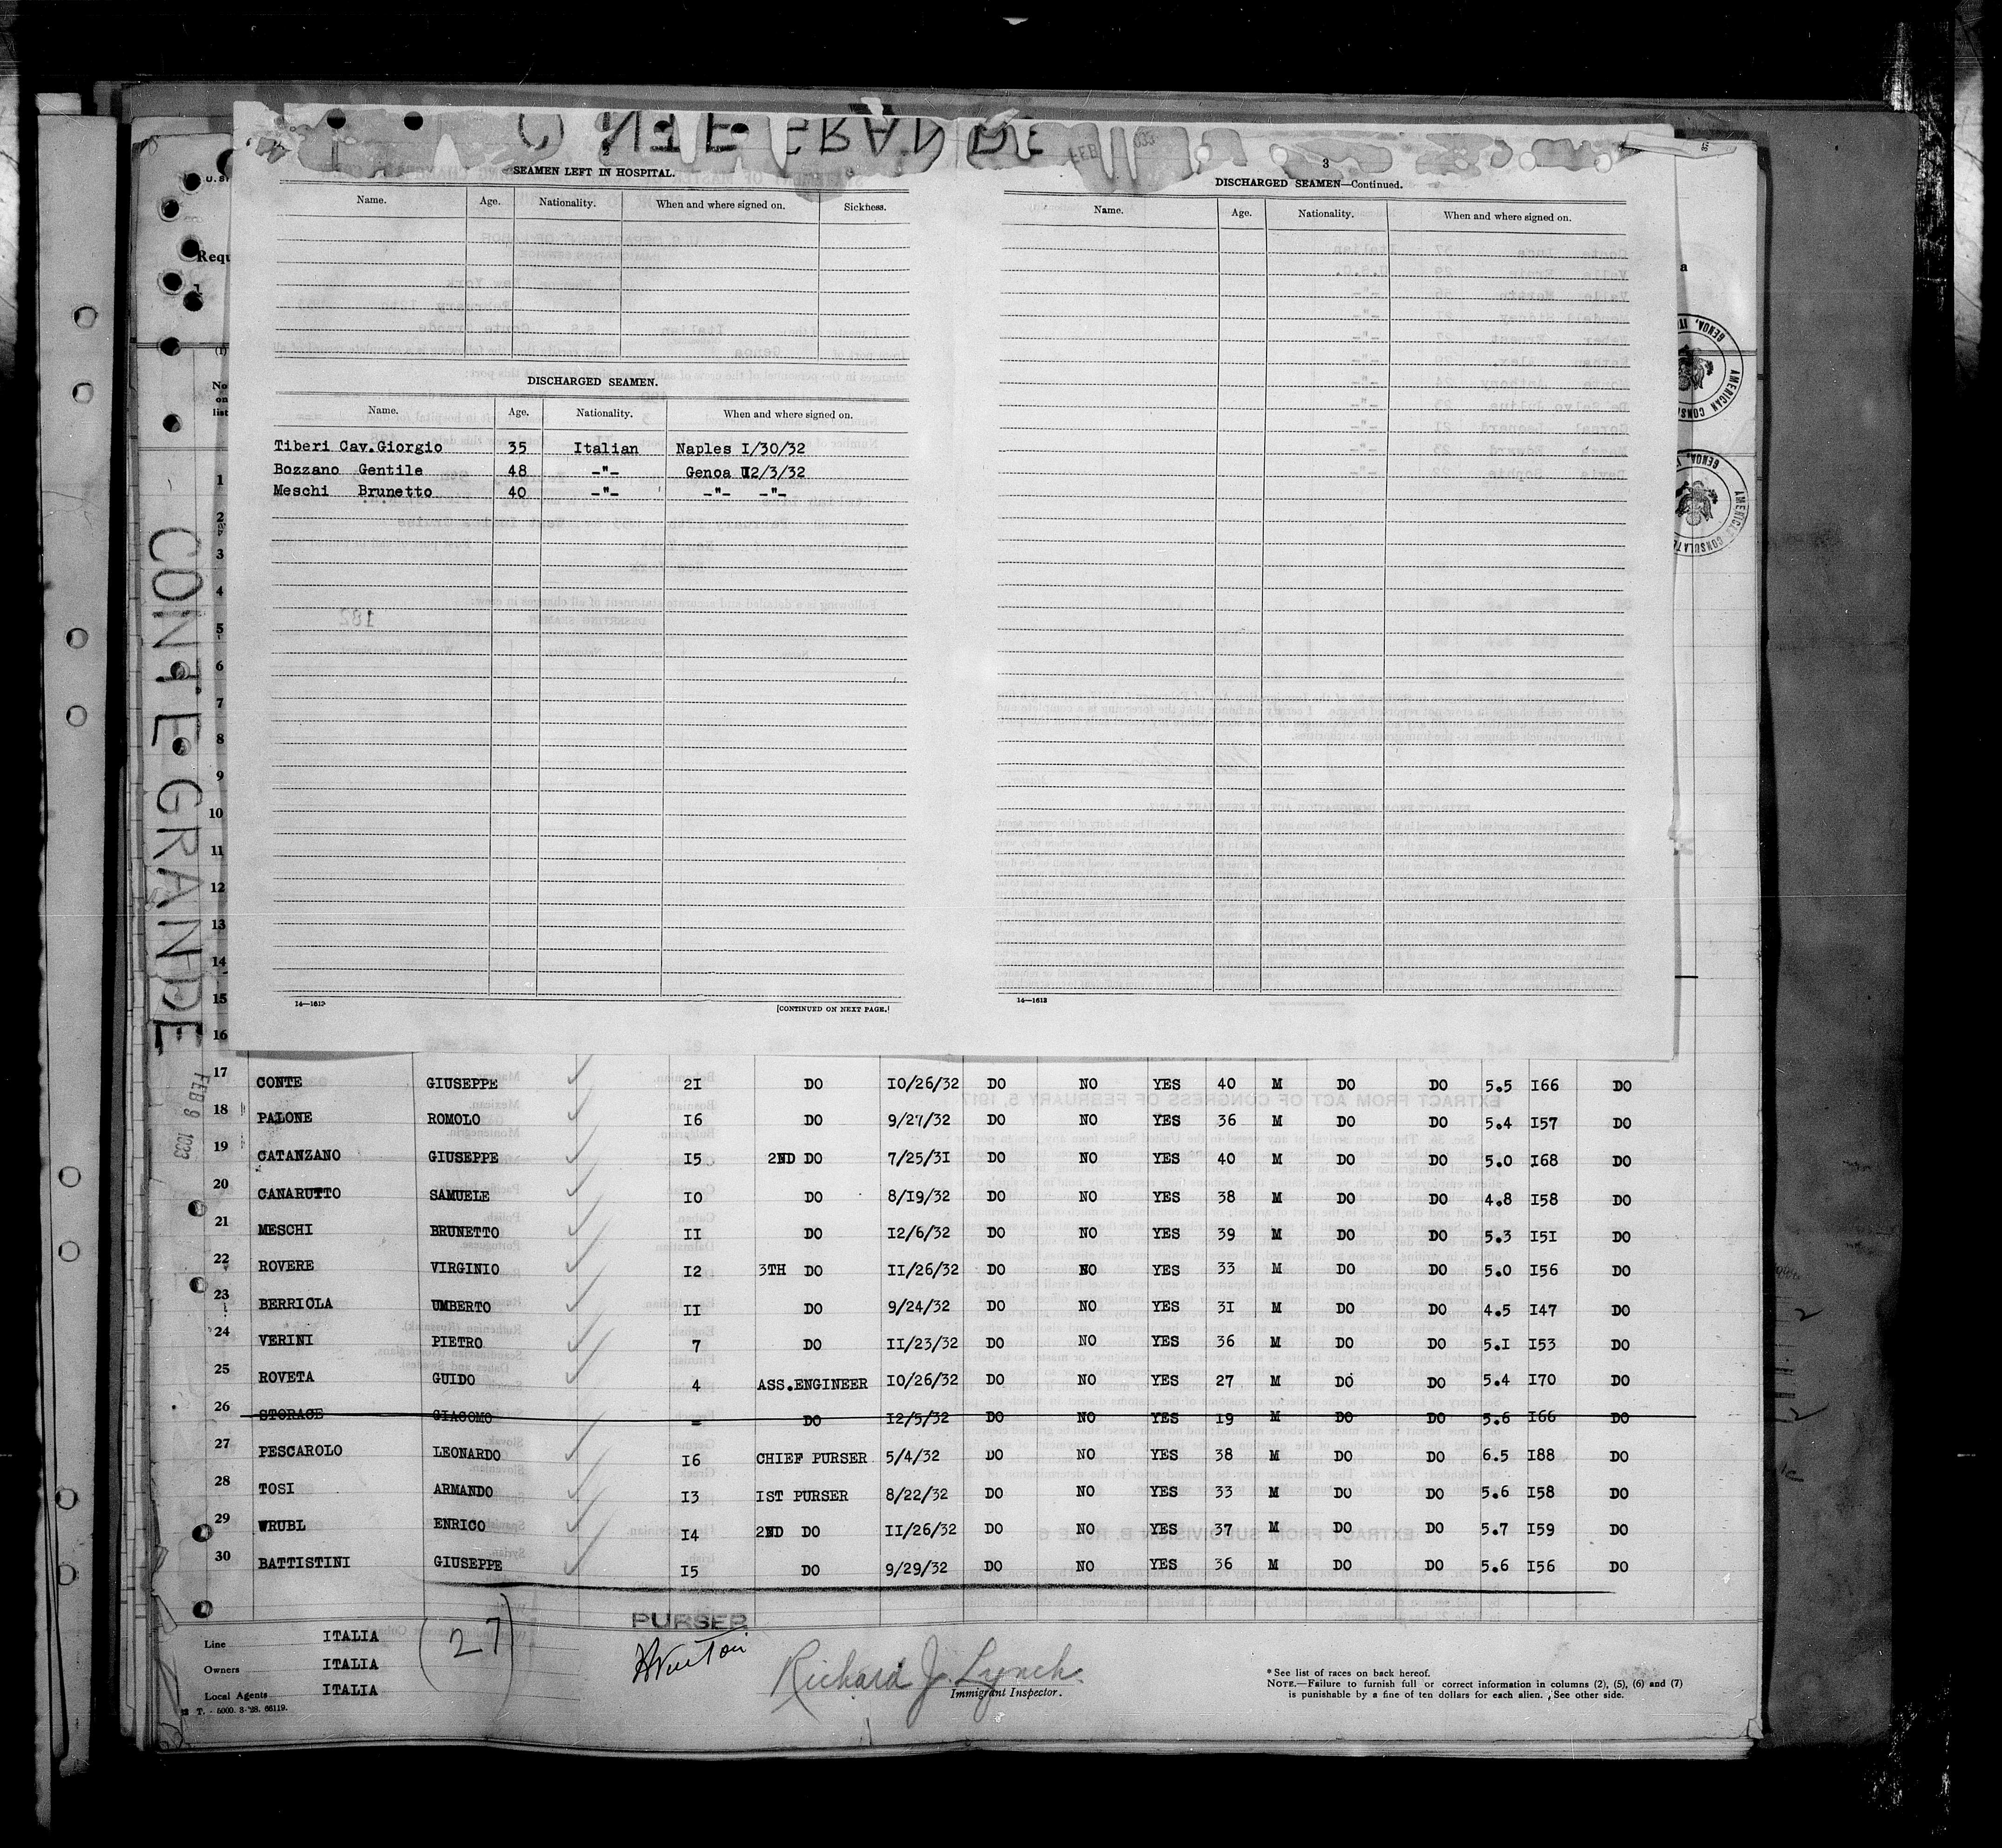 CONTE GRANDE
3
SEAMEN LEFT IN HOSPITAL.
Name. Age. Nationality. When and where signed on. Sickness.
DISCHARGED SEAMEN.
Name. Age. Nationality. When and where signed on.
Tiberi Cav.Giorgio 35 Italian Naples I/30/32
Bozzano Gentile 48 -"- Genoa 12/3/32
Meschi Brunetto 40 -"- -"- -"-
14—1613
[CONTINUED ON NEXT PAGE.]
DISCHARGED SEAMEN—Continued.
Name. Age. Nationality. When and where signed on.
14—1613
Requ
No
on
list
CONTE GRANDE
FEB 9 1933
GENOA, IT
AMERICAN CONS
GENOA,
AMERICAN CONSULATE
1
2
3
4
5
6
7
8
9
10
11
12
13
14
15
16
17 CONTE GIUSEPPE 2I DO IO/26/32 DO NO YES 40 M DO DO 5.5 I66 DO
18 PALONE ROMOLO I6 DO 9/27/32 DO NO YES 36 M DO DO 5.4 I57 DO
19 CATANZANO GIUSEPPE I5 2ND DO 7/25/3I DO NO YES 40 M DO DO 5.0 I68 DO
20 CANARUTTO SAMUELE IO DO 8/I9/32 DO NO YES 38 M DO DO 4.8 I58 DO
21 MESCHI BRUNETTO II DO I2/6/32 DO NO YES 39 M DO DO 5.3 I5I DO
22 ROVERE VIRGINIO I2 3TH DO II/26/32 DO NO YES 33 M DO DO 5.0 I56 DO
23 BERRIOLA UMBERTO II DO 9/24/32 DO NO YES 3I M DO DO 4.5 I47 DO
24 VERINI PIETRO 7 DO II/23/32 DO NO YES 36 M DO DO 5.I I53 DO
25 ROVETA GUIDO 4 ASS.ENGINEER IO/26/32 DO NO YES 27 M DO DO 5.4 I70 DO
26 STORACE GIACOMO = DO I2/5/32 DO NO YES I9 M DO DO 5.6 I66 DO
27 PESCAROLO LEONARDO I6 CHIEF PURSER 5/4/32 DO NO YES 38 M DO DO 6.5 I88 DO
28 TOSI ARMANDO I3 IST PURSER 8/22/32 DO NO YES 33 M DO DO 5.6 I58 DO
29 WRUBL ENRICO I4 2ND DO II/26/32 DO NO YES 37 M DO DO 5.7 I59 DO
30 BATTISTINI GIUSEPPE I5 DO 9/29/32 DO NO YES 36 M DO DO 5.6 I56 DO
Line ITALIA
Owners ITALIA
Local Agents ITALIA
T. - 5000. 3-'28. 66119.
(27)
PURSER
Richard J. Lynch
Immigrant Inspector.
* See list of races on back hereof.
NOTE.—Failure to furnish full or correct information in columns (2), (5), (6) and (7)
is punishable by a fine of ten dollars for each alien. See other side.